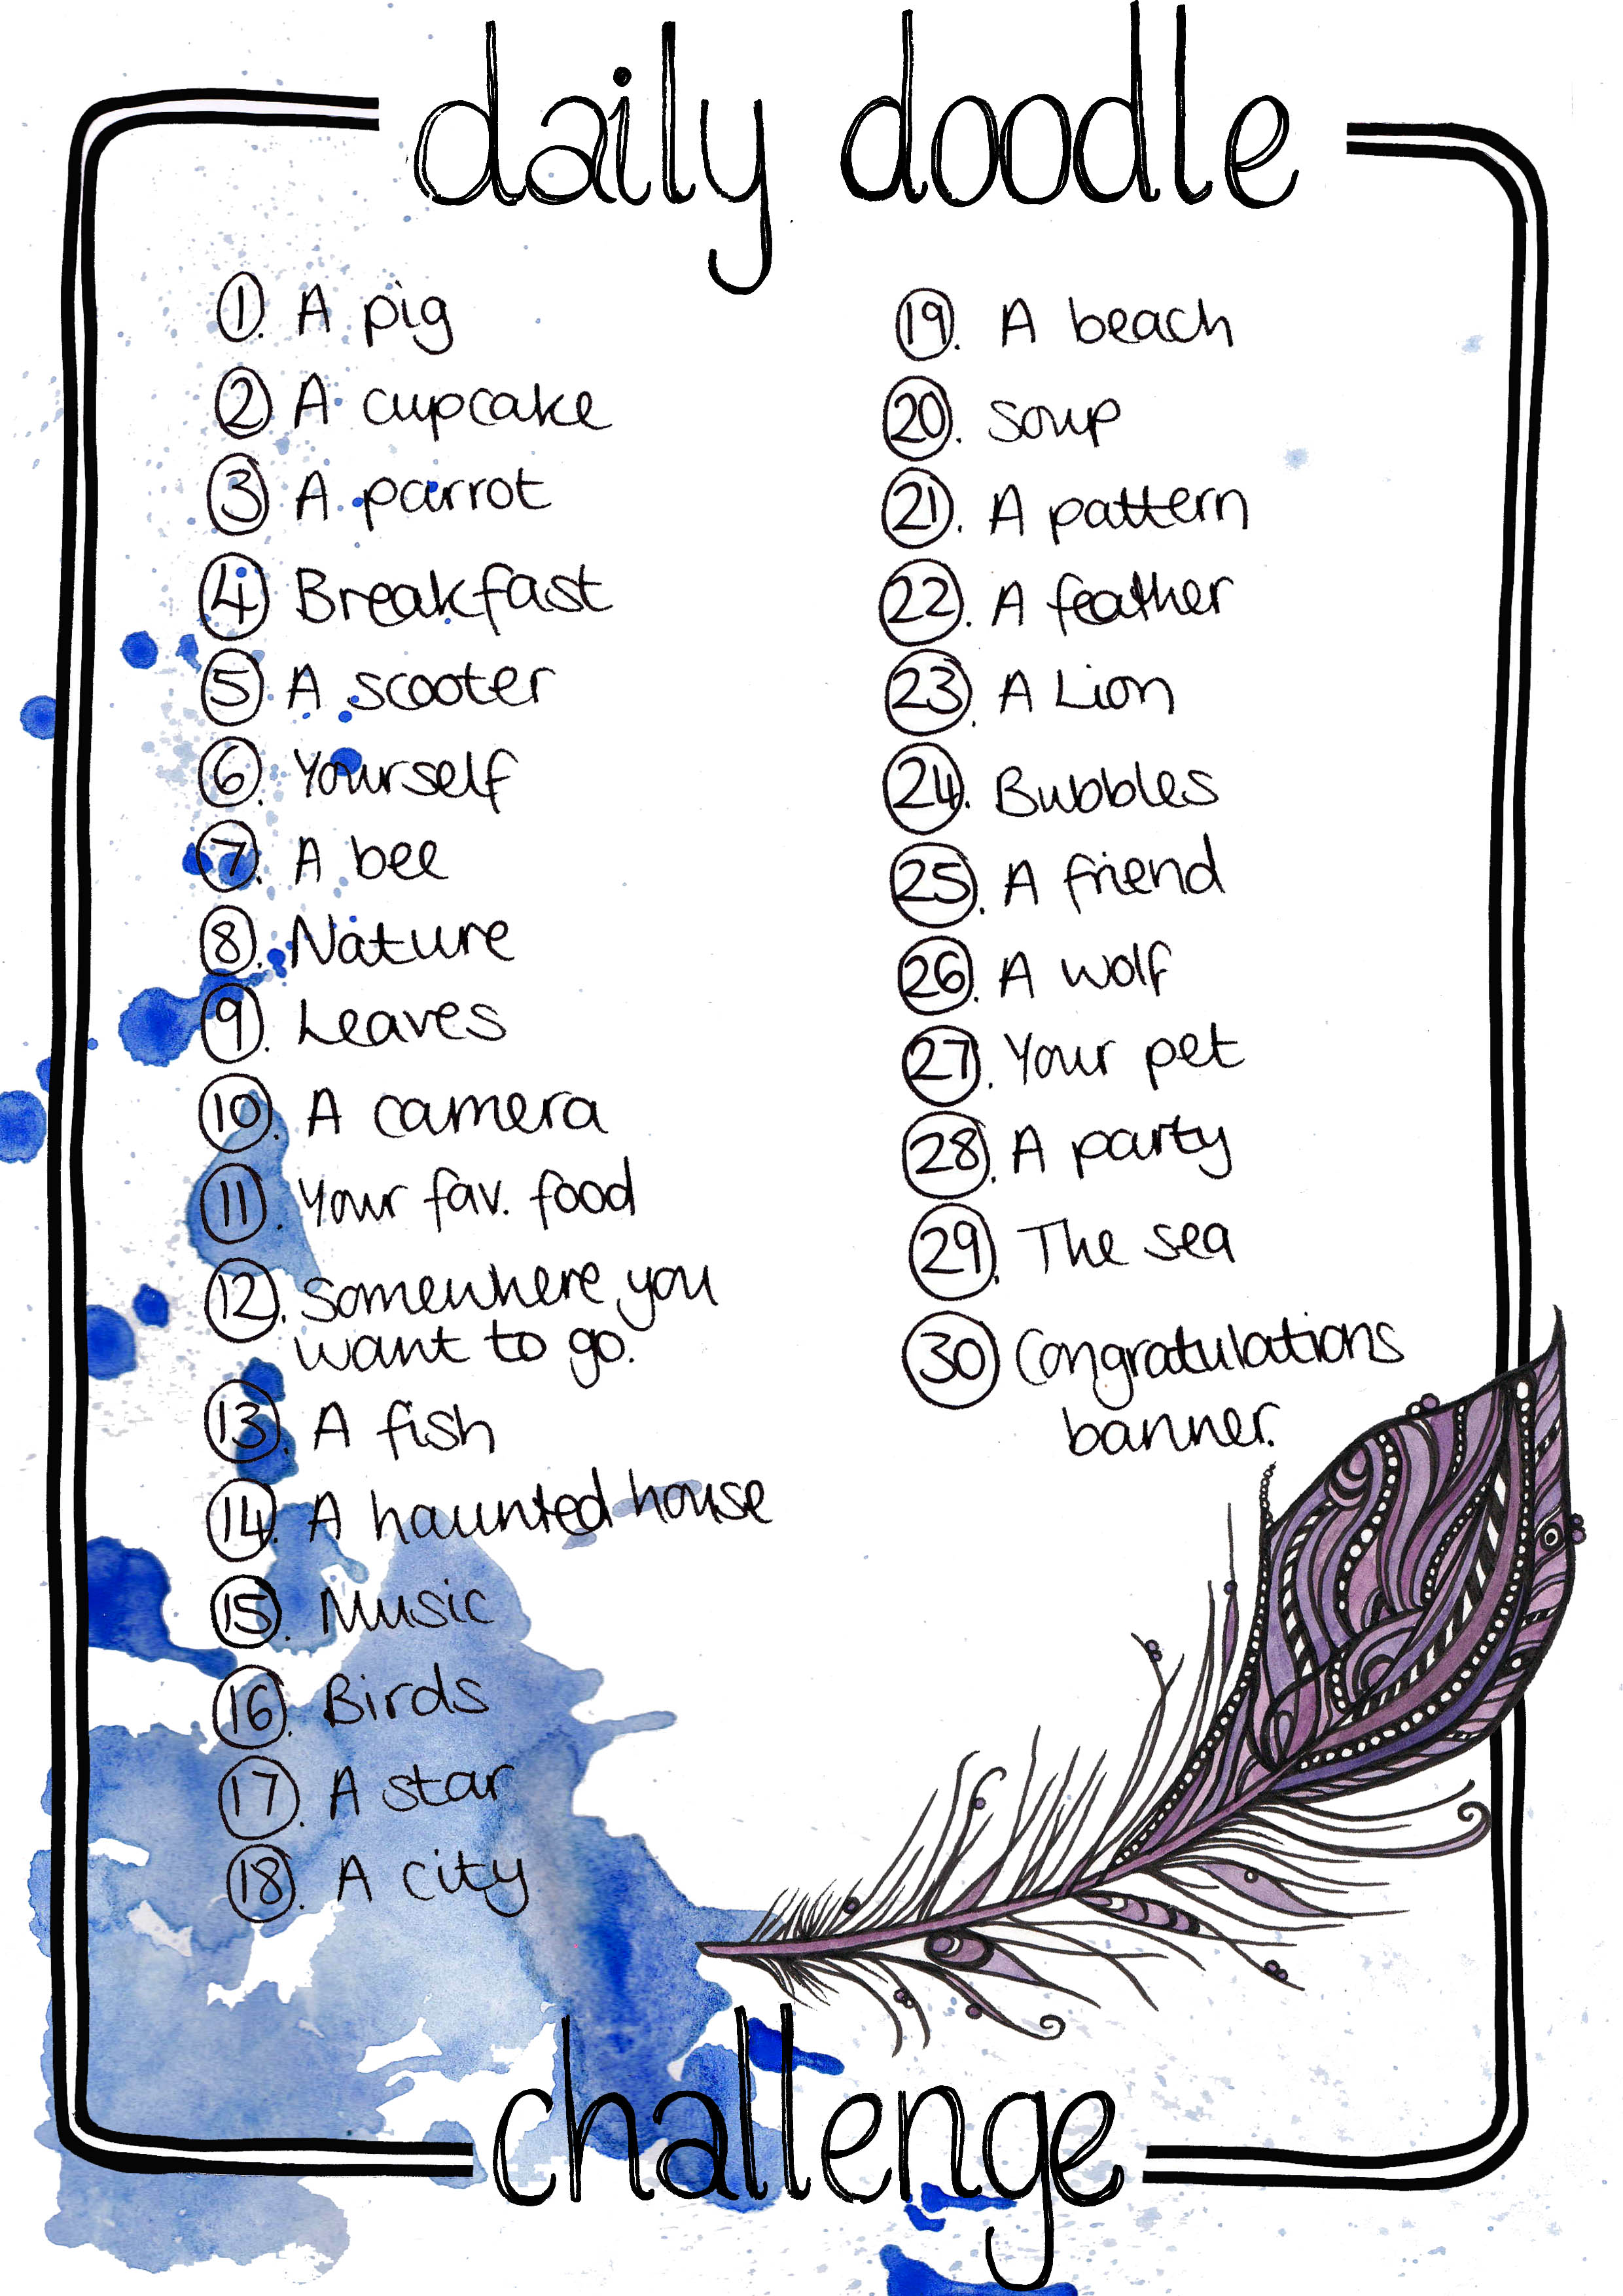 daily doodle
1. A pig
2. A cupcake
3. A parrot
4. Breakfast
5. A scooter
6. Yourself
7. A bee
8. Nature
9. Leaves
10. A camera
11. Your fav. food
12. Somewhere you
want to go.
13. A fish
14. A haunted house
15. Music
16. Birds
17. A star
18. A city
19. A beach
20. Soup
21. A pattern
22. A feather
23. A Lion
24. Bubbles
25. A friend
26. A wolf
27. Your pet
28. A party
29. The sea
30 Congratulations
banner.
challenge